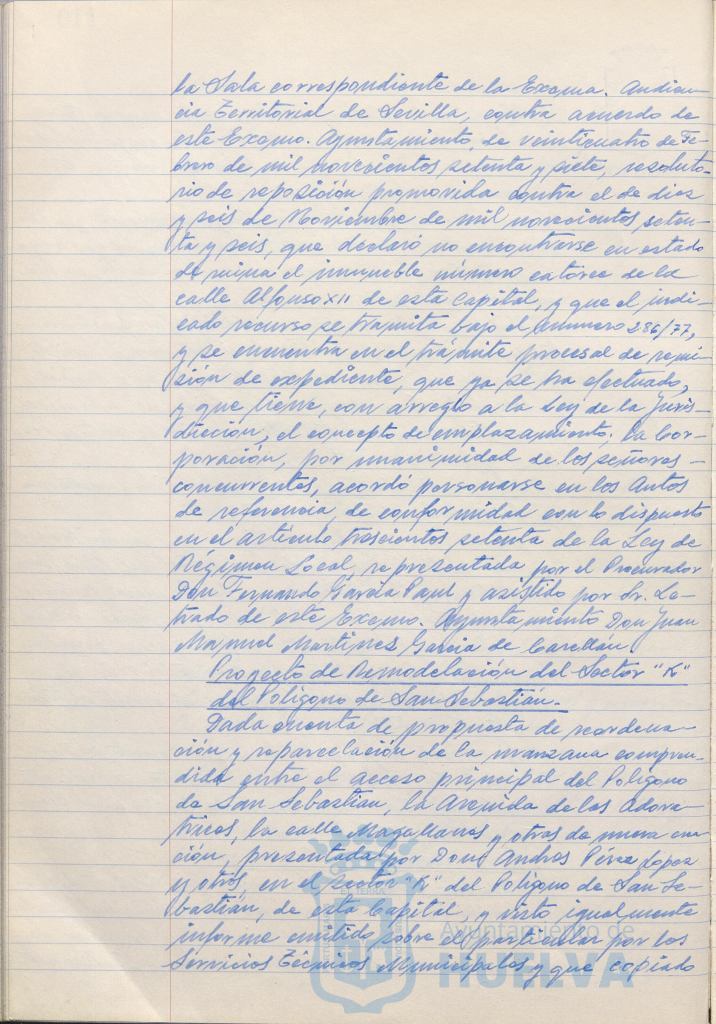 la Sala correspondiente de la Excma. Audien-
cia Territorial de Sevilla, contra acuerdo de
este Excmo. Ayuntamiento, de veinticuatro de Fe-
brero de mil novecientos setenta y siete, resoluto-
rio de reposición promovida contra el de diez
y seis de Noviembre de mil novecientos seten-
ta y seis, que declaró no encontrarse en estado
de ruina el inmueble número catorce de la
calle Alfonso XII de esta Capital, y que el indi-
cado recurso se tramita bajo el número 286/77,
y se encuentra en el trámite procesal de remi-
sión de expediente, que ya se ha efectuado,
y que tiene, con arreglo a la Ley de la Juris-
dicción, el concepto de emplazamiento. La Cor-
poración, por unanimidad de los señores
concurrentes, acordó personarse en los Autos
de referencia, de conformidad con lo dispuesto
en el artículo trescientos setenta de la Ley de
Régimen Local, representada por el Procurador
Don Fernando García Paul y asistido por Sr. Le-
trado de este Excmo. Ayuntamiento Don Juan
Manuel Martínez García de
Proyecto de Remodelación del Sector "K"
del Polígono de San Sebastián.-
Dada cuenta de propuesta de reordena-
ción y reparcelación de la manzana compren-
dida entre el acceso principal del Polígono
de San Sebastián, la Avenida de las Adora-
trices, la calle Magallanes y otras de nueva crea-
ción, presentada por Don Andrés Pérez López
y otros, en el sector "K" del Polígono de San Se-
bastián, de esta Capital, y visto igualmente
informe emitido sobre el particular por los
Servicios Técnicos Municipales y que copiado
Ayuntamiento de
HUELVA